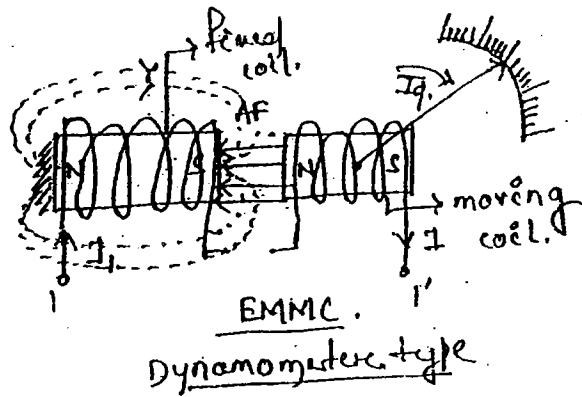 Fixed
coil.
AF
Iq.
N
S
N
S
moving
coil.
I
I
1
1'
EMMC.
Dynamometere type